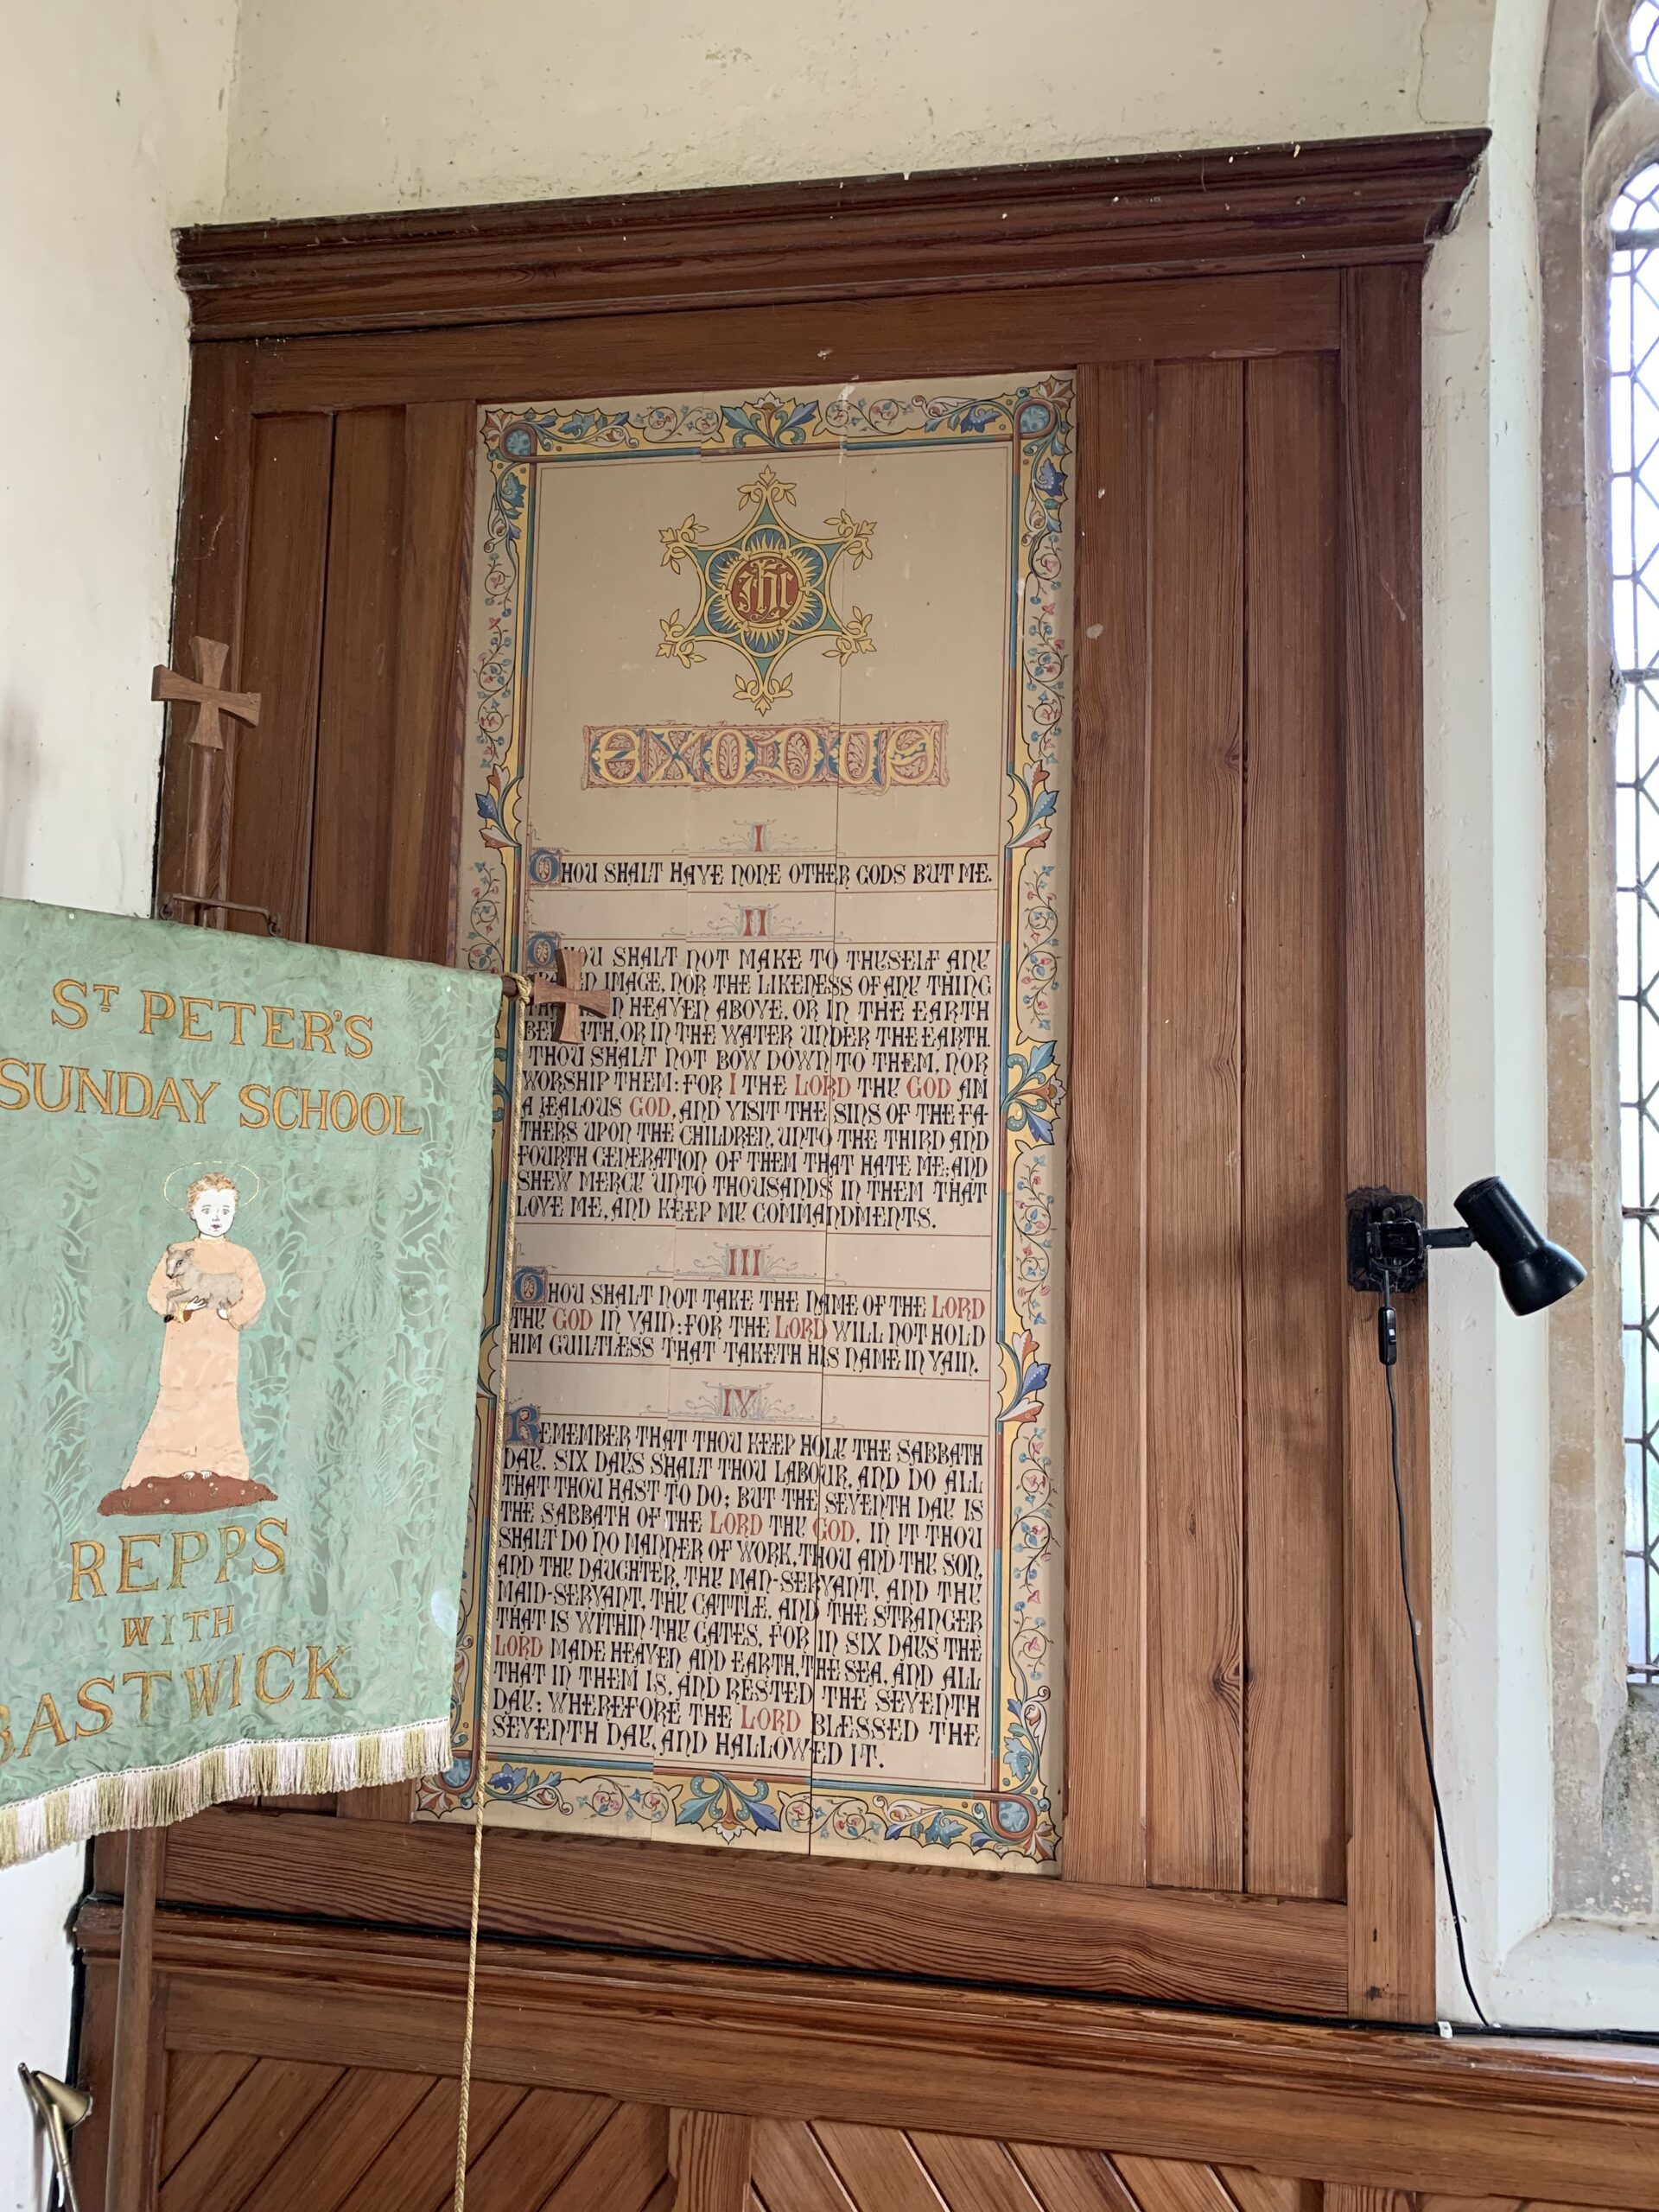 ihc
EXODUS
I
THOU SHALT HAVE NONE OTHER GODS BUT ME.
II
THOU SHALT NOT MAKE TO THYSELF ANY
IMAGE, NOR THE LIKENESS OF ANY THING
IN HEAVEN ABOVE, OR IN THE EARTH
BENEATH, OR IN THE WATER UNDER THE EARTH.
THOU SHALT NOT BOW DOWN TO THEM, NOR
WORSHIP THEM: FOR I THE LORD THY GOD AM
A JEALOUS GOD, AND VISIT THE SINS OF THE FA-
THERS UPON THE CHILDREN, UNTO THE THIRD AND
FOURTH GENERATION OF THEM THAT HATE ME: AND
SHEW MERCY UNTO THOUSANDS IN THEM THAT
LOVE ME, AND KEEP MY COMMANDMENTS.
III
THOU SHALT NOT TAKE THE NAME OF THE LORD
THY GOD IN VAIN: FOR THE LORD WILL NOT HOLD
HIM GUILTLESS THAT TAKETH HIS NAME IN VAIN.
IV
REMEMBER THAT THOU KEEP HOLY THE SABBATH
DAY. SIX DAYS SHALT THOU LABOUR, AND DO ALL
THAT THOU HAST TO DO; BUT THE SEVENTH DAY IS
THE SABBATH OF THE LORD THY GOD. IN IT THOU
SHALT DO NO MANNER OF WORK, THOU AND THY SON,
AND THY DAUGHTER, THY MAN-SERVANT, AND THY
MAID-SERVANT, THY CATTLE, AND THE STRANGER
THAT IS WITHIN THY GATES. FOR IN SIX DAYS THE
LORD MADE HEAVEN AND EARTH, THE SEA, AND ALL
THAT IN THEM IS, AND RESTED THE SEVENTH
DAY: WHEREFORE THE LORD BLESSED THE
SEVENTH DAY, AND HALLOWED IT.
ST PETER'S
SUNDAY SCHOOL
REPPS
WITH
BASTWICK